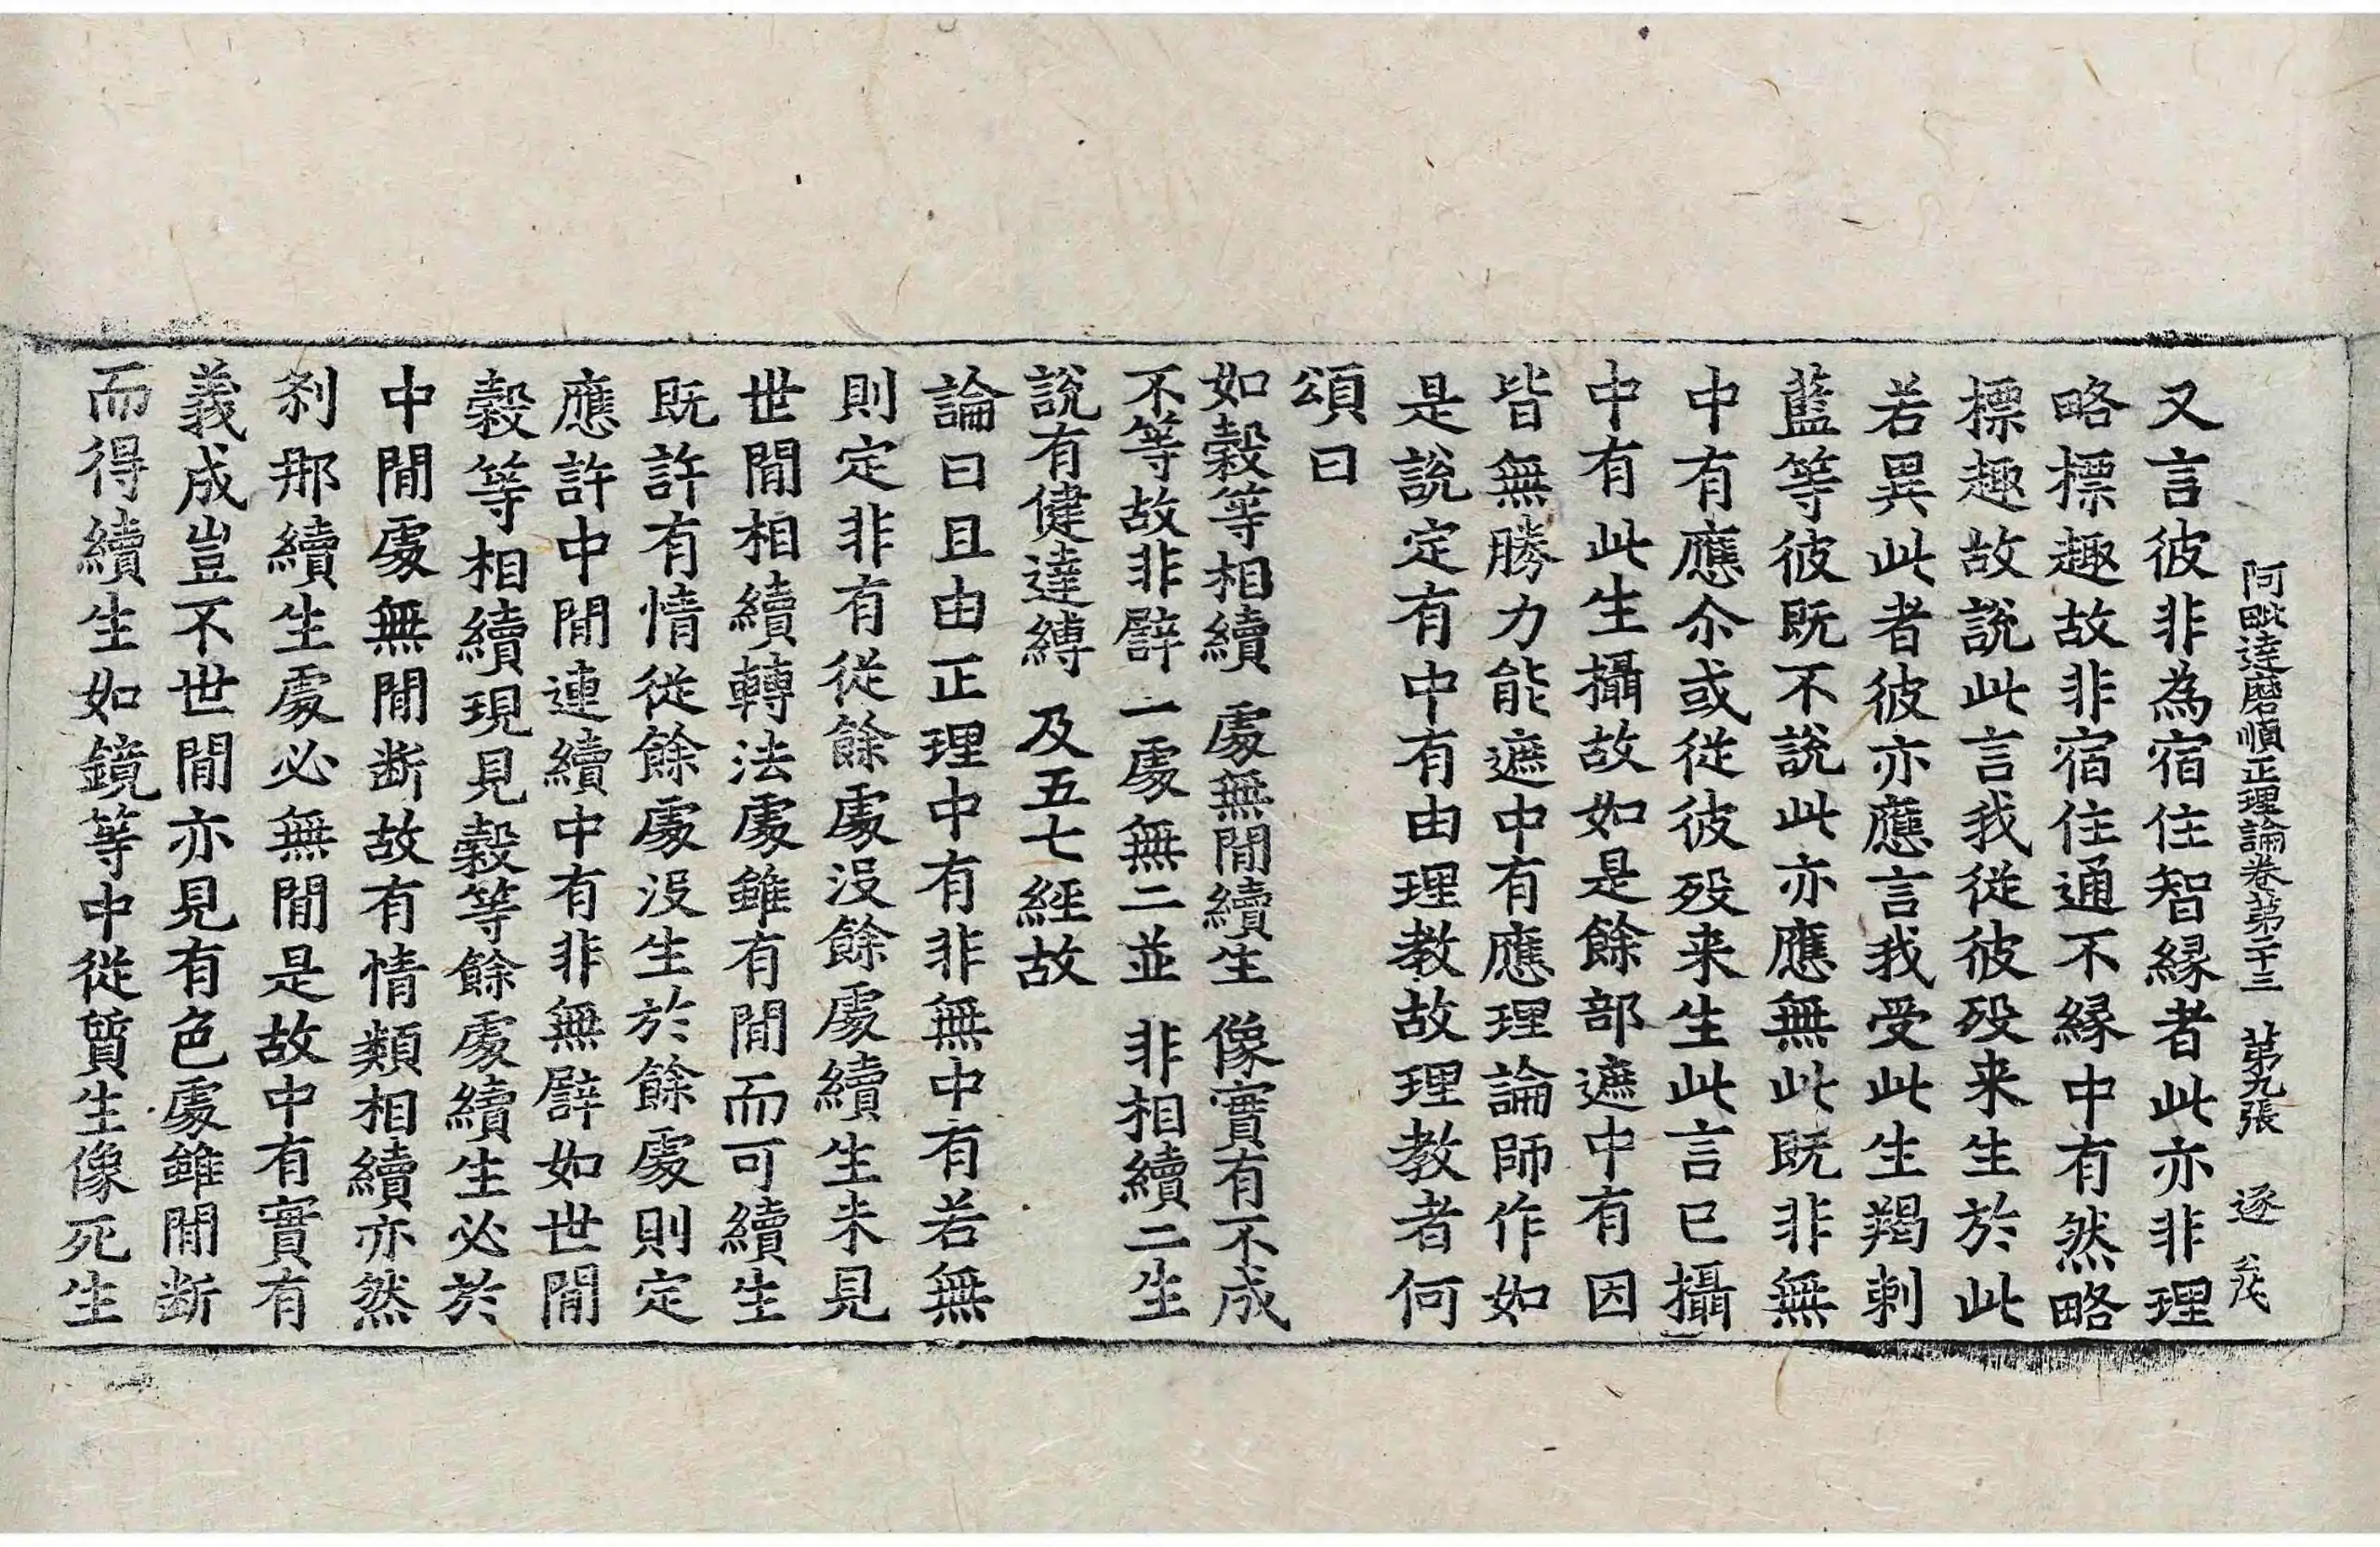 阿毗達磨順正理論卷第二十三 第九張 逐
又言彼非為宿住智緣者此亦非理
略標趣故非宿住通不緣中有然略
標趣故說此言我從彼歿来生於此
若異此者彼亦應言我受此生羯剌
藍等彼既不說此亦應無此既非無
中有應尒或從彼歿来生此言已攝
中有此生攝故如是餘部遮中有因
皆無勝力能遮中有應理論師作如
是說定有中有由理教故理教者何
頌曰
如穀等相續 處無閒續生 像實有不成
不等故非譬 一處無二並 非相續二生
說有健達縛 及五七經故
論曰且由正理中有非無中有若無
則定非有從餘處沒餘處續生未見
世閒相續轉法處雖有閒而可續生
既許有情從餘處沒生於餘處則定
應許中閒連續中有非無譬如世閒
穀等相續現見穀等餘處續生必於
中閒處無閒断故有情類相續亦然
刹那續生處必無閒是故中有實有
義成豈不世閒亦見有色處雖閒断
而得續生如鏡等中從質生像死生